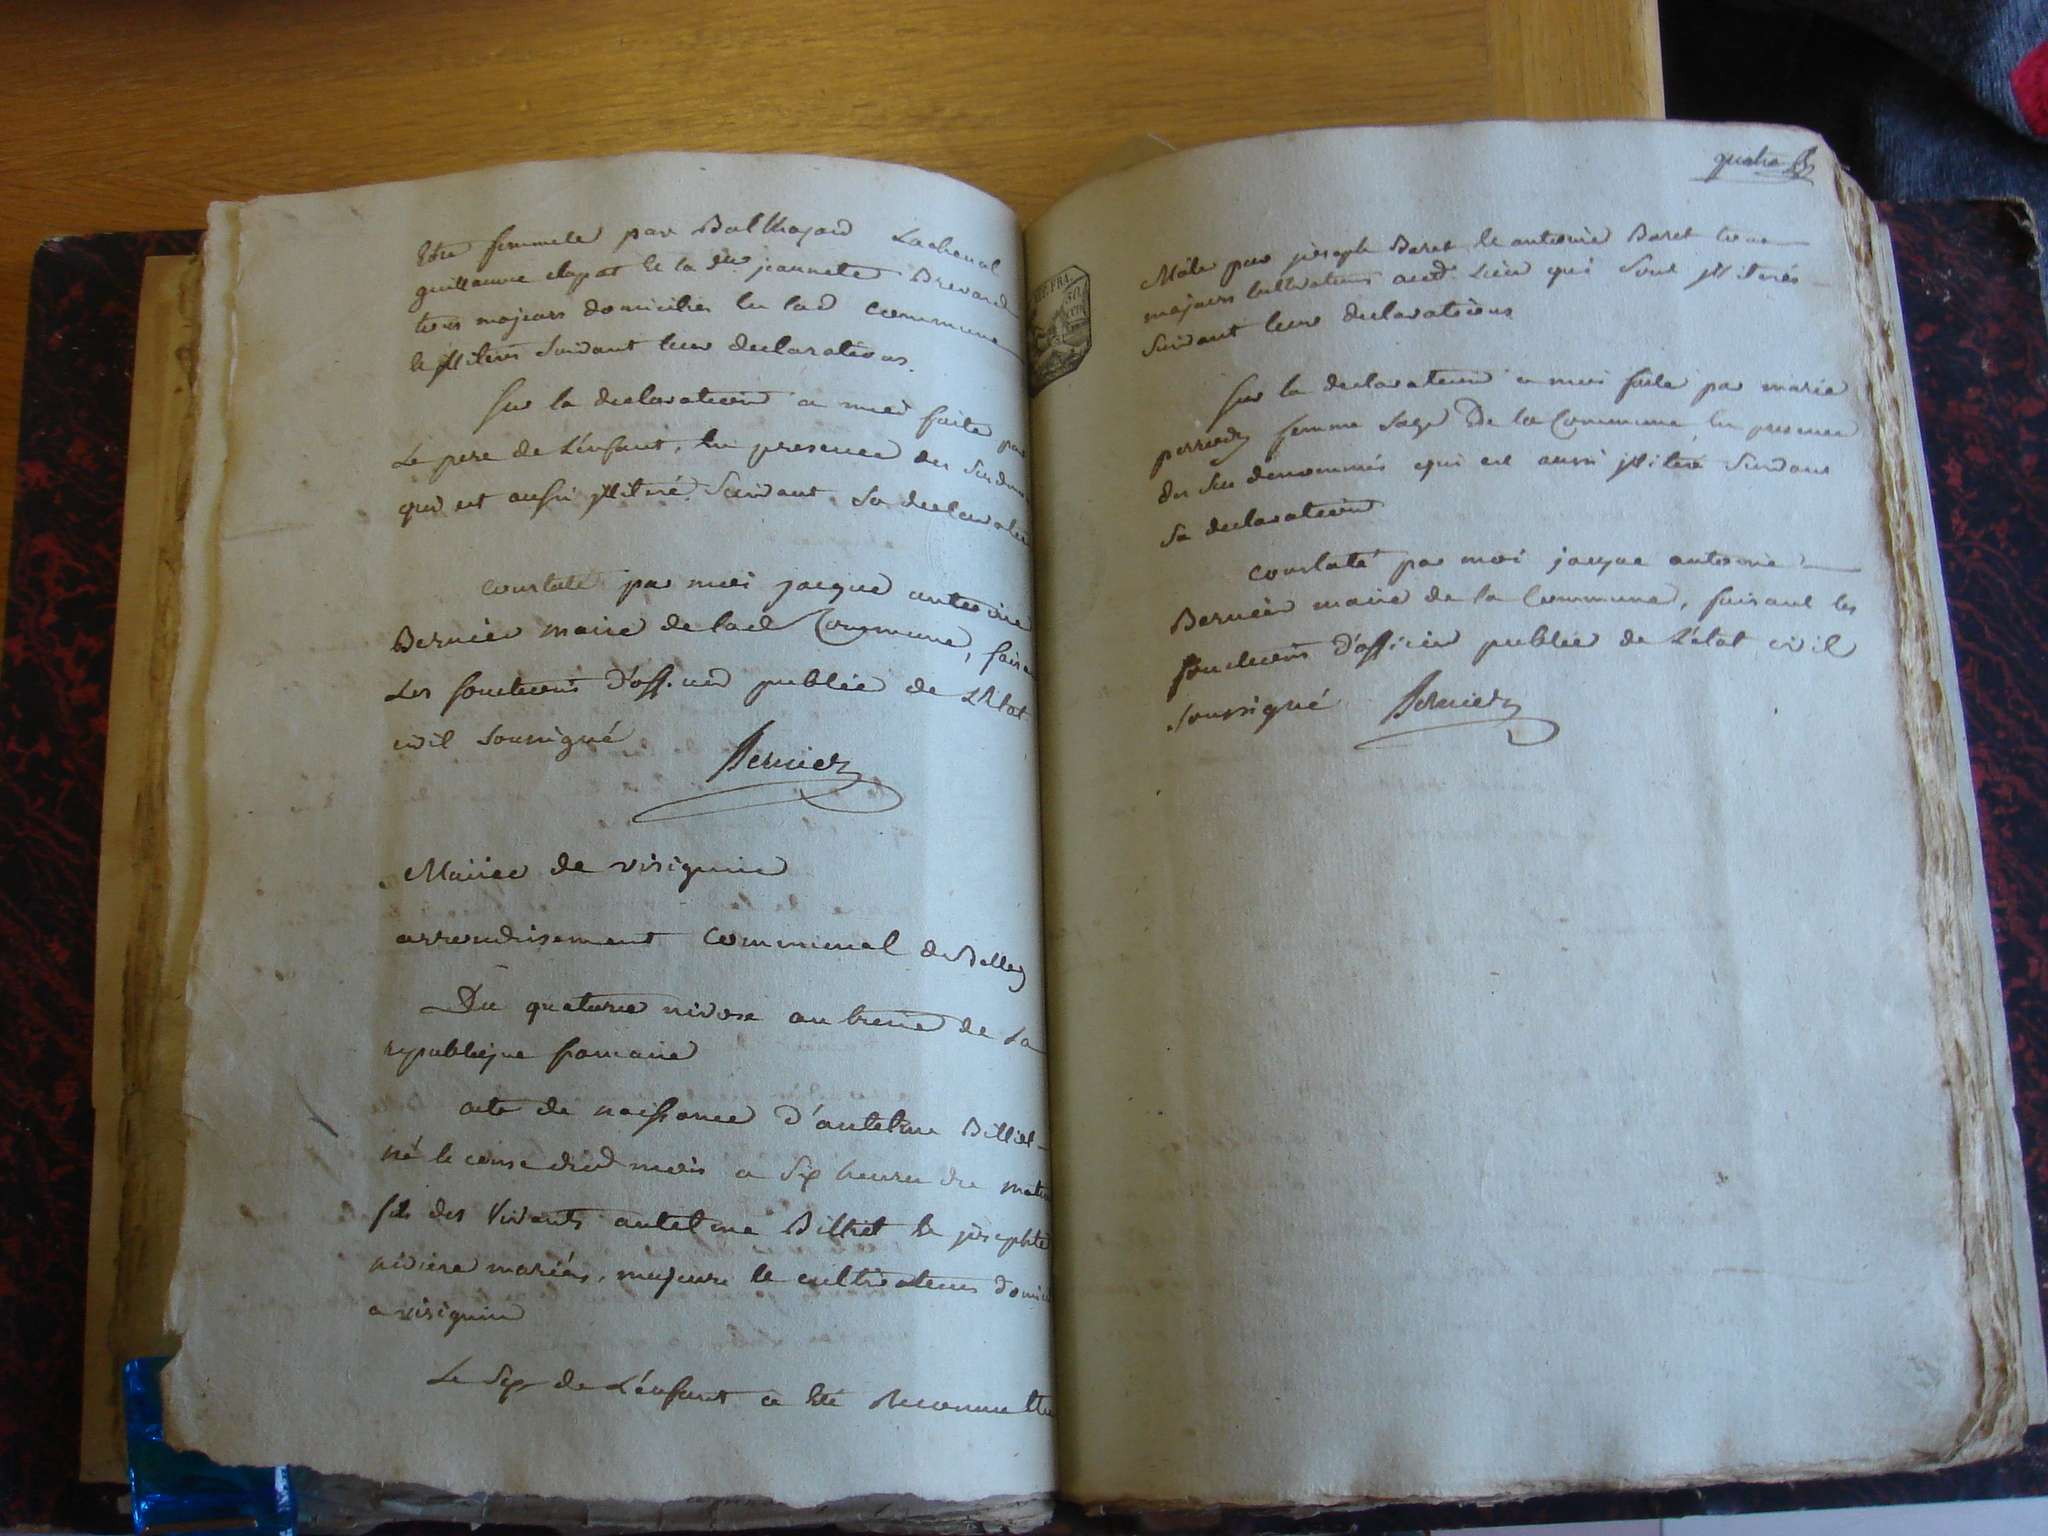 Etre femmele par Balthazard Lachenal
guillaume clapot & la dte jeannete Brevard
tous majeurs domiciliés en lad Commune
& illiterés Suivant leur declarations.
Sur la declaration a moi faite par
Le pere de L'enfant, En presence des Susdenom
qui est aussi illiteré Suivant Sa declaration
Constaté par moi jacque antoine
Bernier maire de lad Commune, faisa
Les fonctions d'officier public de L'Etat
civil Soussigné
Bernier
Mairie de virignin
arrondissement Communal de Belley
Du quatorze nivose an treize de La
republique
acte de naissance d'antelme Billiet
né le onze dud mois a Six heures du matin
fils des Vivants antelme Billiet & josephte
riviere mariés, majeurs & cultivateurs domici
a virignin
Le Sexe de L'enfant a Eté Reconnu Etre
quatre
REP. FRA.
50
Mâle par joseph Baret & antoine Baret tous
majeurs Cultivateurs aud. Lieu qui Sont illiterés
Suivant leur declarations
Sur la declaration a moi faite par marie
femme Sage De la Commune, En presence
des Sus denommés qui est aussi illiteré Suivant
Sa declaration
Constaté par moi jacque antoine
Bernier maire de la Commune, faisant les
fonctions d'officier public de L'état civil
Soussigné Bernier